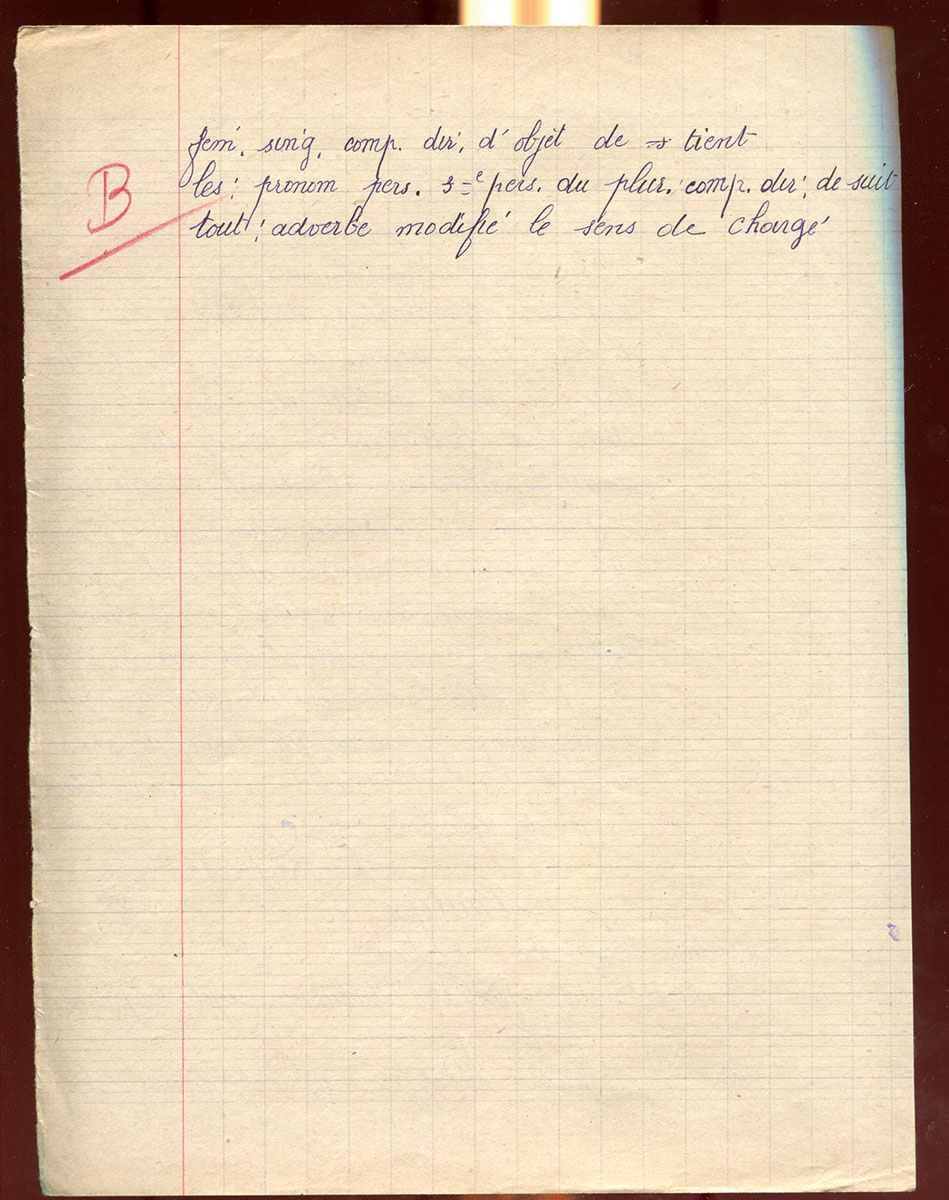 fem. sing. comp. dir. d'objet de tient
B les : pronom pers. 3e pers. du plur. comp. dir. de suit
tout : adverbe modifié le sens de chargé